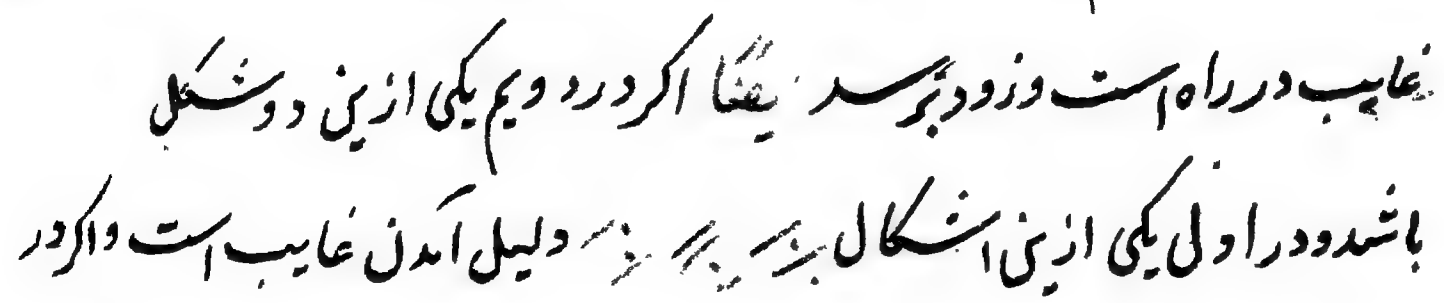 غایب در راه است و زود برسد یقینا اکر در دویم یکی ازین دو شکل
باشد و در اولی یکی ازین اشکال دلیل آمدن غایب است و اکر در